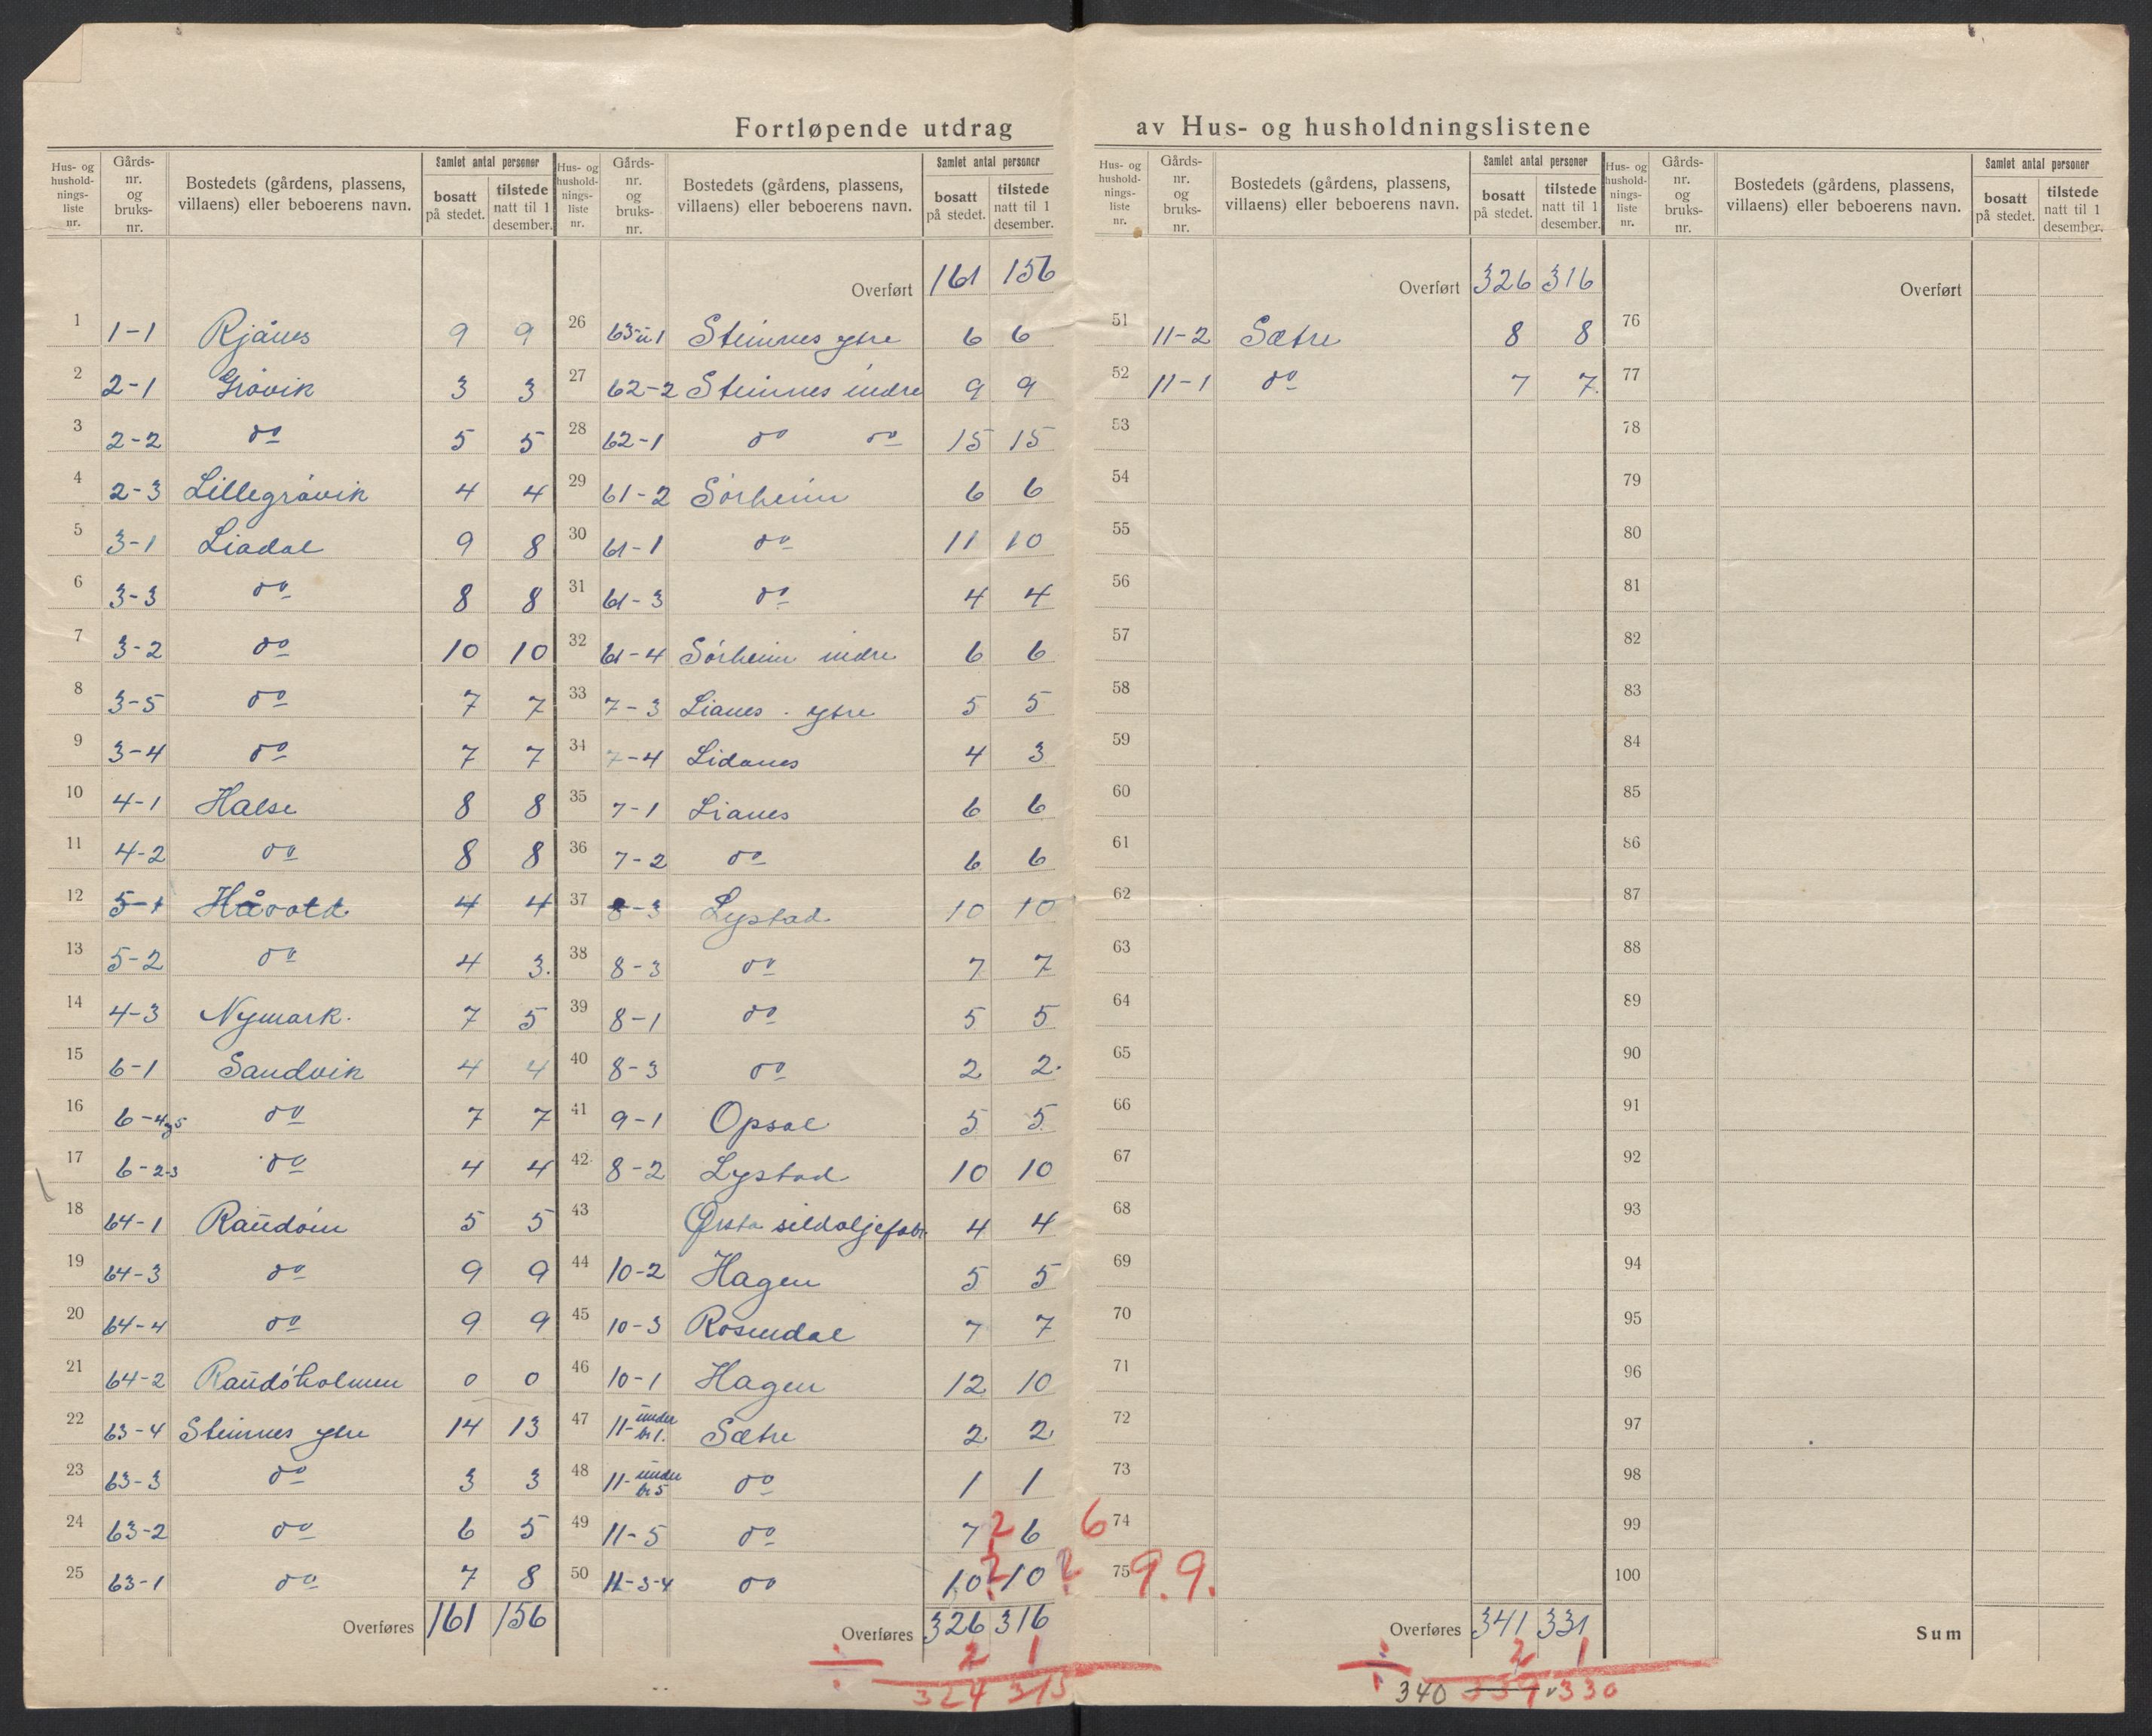 Fortløpende utdrag av Hus- og husholdningslistene
Hus- og hushold- nings- liste nr. | Gårds- nr. og bruks- nr. | Bostedets (gårdens, plassens, villaens) eller beboerens navn. | Samlet antal personer bosatt på stedet. | tilstede natt til 1 desember.
1 1-1 Rjånes 9 9
2 2-1 Gråvik 3 3
3 2-2 do 5 5
4 2-3 Lillegråvik 4 4
5 3-1 Liadal 9 8
6 3-3 do 8 8
7 3-2 do 10 10
8 3-5 do 7 7
9 3-4 do 7 7
10 4-1 Halse 8 8
11 4-2 do 8 8
12 5-1 Håvold 4 4
13 5-2 do 4 3.
14 4-3 Nymark. 7 5
15 6-1 Sandvik 4 4
16 6-4 5 do 7 7
17 6-2-3 do 4 4
18 64-1 Raudöin 5 5
19 64-3 do 9 9
20 64-4 do 9 9
21 64-2 Raudöholmen 0 0
22 63-4 Steinnes ytre 14 13
23 63-3 do 3 3
24 63-2 do 6 5
25 63-1 do 7 8
Overføres 161 156
Hus- og hushold- nings- liste nr. | Gårds- nr. og bruks- nr. | Bostedets (gårdens, plassens, villaens) eller beboerens navn. | Samlet antal personer bosatt på stedet. | tilstede natt til 1 desember.
Overført 161 156
26 63 u 1 Steinnes ytre 6 6
27 62-2 Steinnes indre 9 9
28 62-1 do do 15 15
29 61-2 Sörheim 6 6
30 61-1 do 11 10
31 61-3 do 4 4
32 61-4 Sörheim indre 6 6
33 7-3 Lianes - ytre 5 5
34 7-4 Lidanes 4 3
35 7-1 Lianes 6 6
36 7-2 do 6 6
37 8-3 Lystad 10 10
38 8-3 do 7 7
39 8-1 do 5 5
40 8-3 do 2 2.
41 9-1 Opsal 5 5
42 8-2 Lystad 10 10
43 Ørsta sildoljefabr. 4 4
44 10-2 Hagen 5 5
45 10-3 Rosendal 7 7
46 10-1 Hagen 12 10
47 11- under br 1. Sætre 2 2
48 11- under br 5 do 1 1
49 11-5 do 7 ? 6 6
50 11-3-4 do 10 ? 10 ? 9. 9.
Overføres 326 316
÷ 2 1
324 315
Hus- og hushold- nings- liste nr. | Gårds- nr. og bruks- nr. | Bostedets (gårdens, plassens, villaens) eller beboerens navn. | Samlet antal personer bosatt på stedet. | tilstede natt til 1 desember.
Overført 326 316
51 11-2 Sætre 8 8
52 11-1 do 7 7.
53
54
55
56
57
58
59
60
61
62
63
64
65
66
67
68
69
70
71
72
73
74
75
Overføres 341 331
÷ 2 1
340 339 v 330
Hus- og hushold- nings- liste nr. | Gårds- nr. og bruks- nr. | Bostedets (gårdens, plassens, villaens) eller beboerens navn. | Samlet antal personer bosatt på stedet. | tilstede natt til 1 desember.
Overført
76
77
78
79
80
81
82
83
84
85
86
87
88
89
90
91
92
93
94
95
96
97
98
99
100
Sum